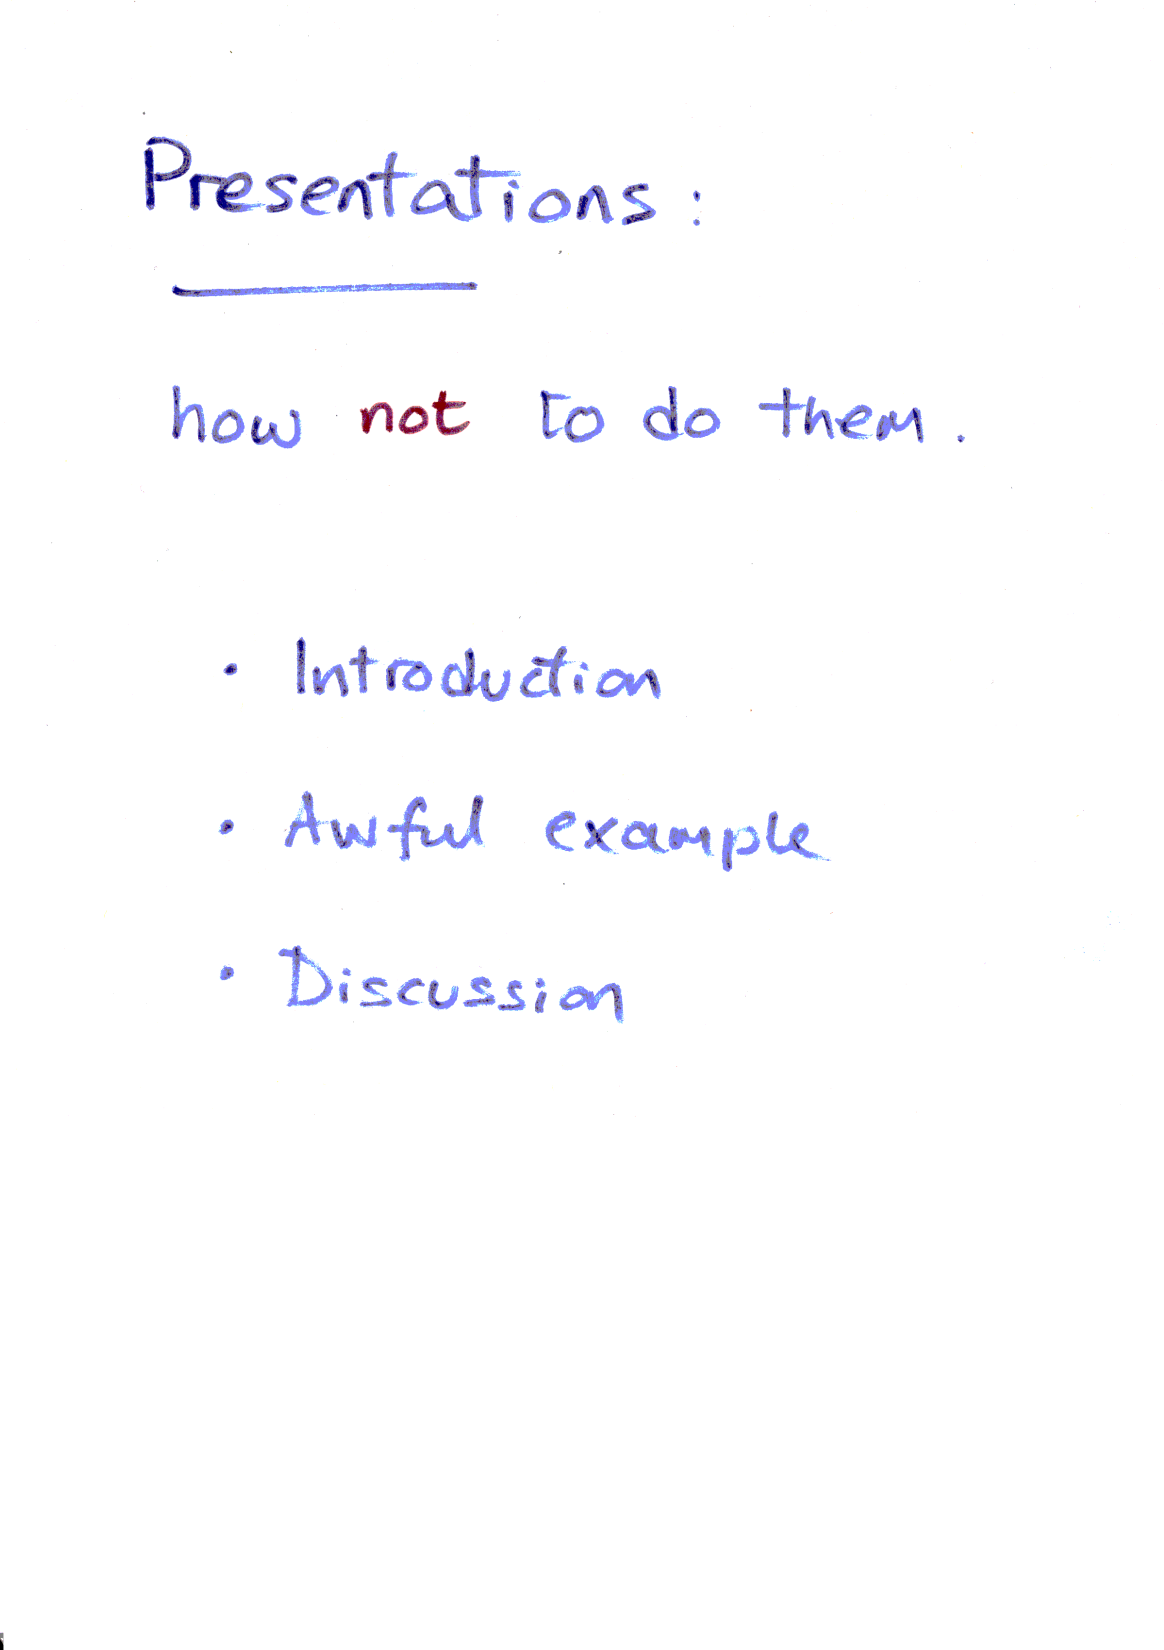 Presentations:
how not to do them.
• Introduction
• Awful example
• Discussion